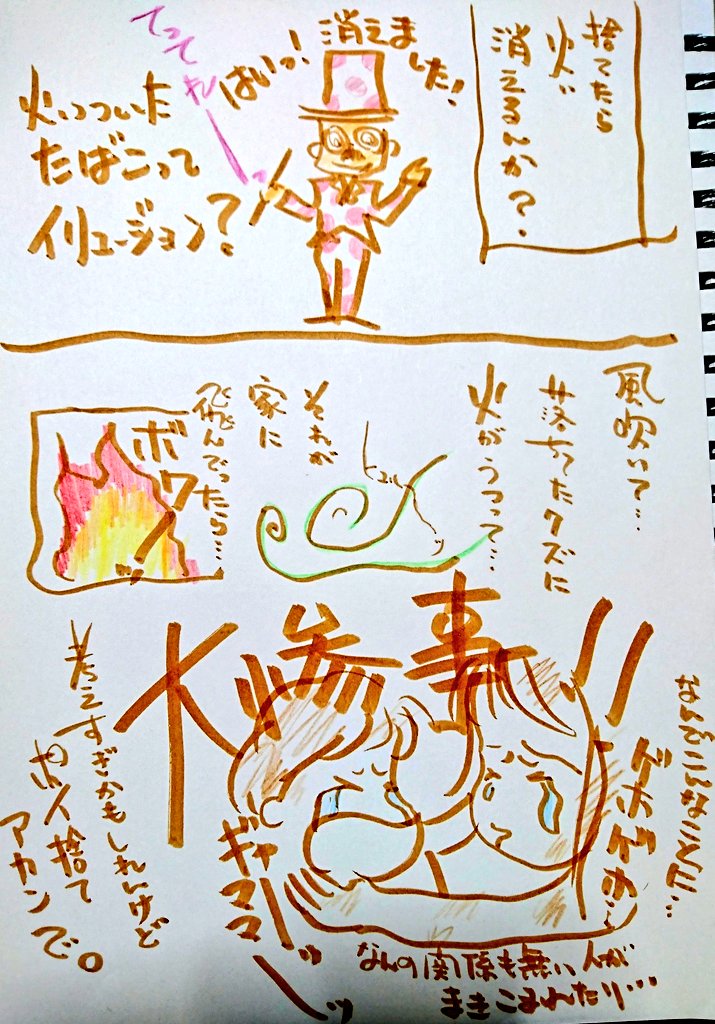 捨てたら
火ぃ
消えるんか？
はいっ！消えました！
てってれー
火ぃついた
たばこって
イリュージョン？
風吹いて…
落ちてたクズに
火がうつって…
ヒュルルーッ
それが
家に
飛んでったら…
ボワーッ
大惨事!!
なんでこんなことに…
ゲホゲホ…
ギャーーーッ
ママーーッ
なんの関係も無い人が
まきこまれたり…
考えすぎかもしれんけど
ポイ捨て
アカンで。